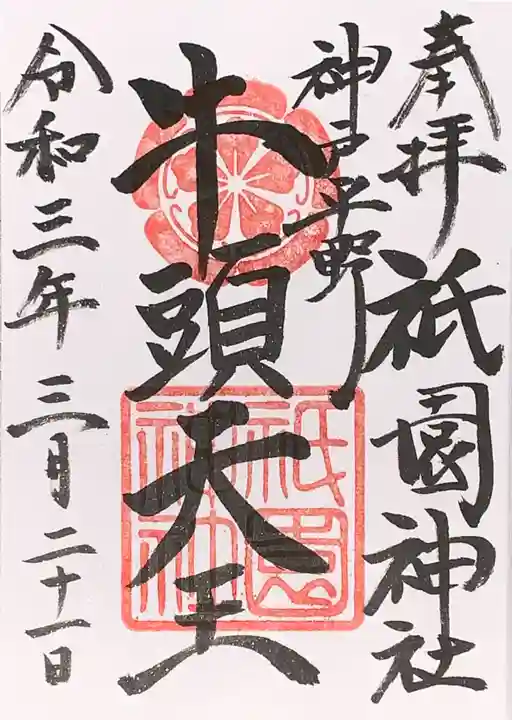 奉拝
祇園神社
神戸平野
牛頭天王
令和三年三月二十一日
祇園
神社